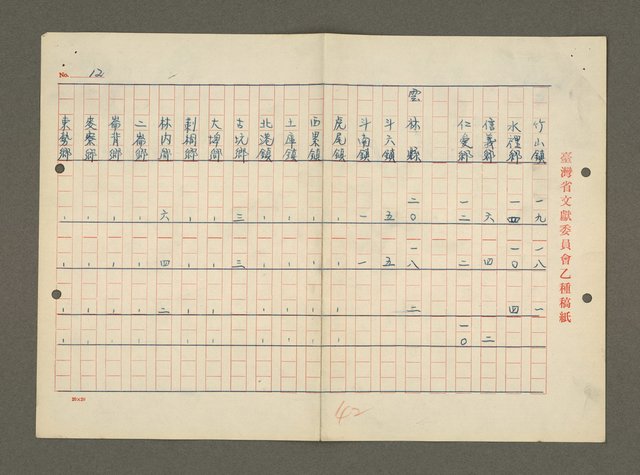 臺灣省文獻委員會乙種稿紙
No. 12
竹山鎮 一九 一八 一
水裡鄉 一四 一〇 四
信義鄉 六 四 二
仁愛鄉 一二 二 一〇
雲林縣 二〇 一八 二
斗六鎮 五 五
斗南鎮 一 一
虎尾鎮 - - - -
西果鎮 - - - -
土庫鎮 - - - -
北港鎮 - - - -
古坑鄉 三 三 - -
大埤鄉 - - - -
莿桐鄉 - - - -
林內鄉 六 四 二 -
二崙鄉 - - - -
崙背鄉 - - - -
麥寮鄉 - - - -
東勢鄉 - - - -
20×20
42